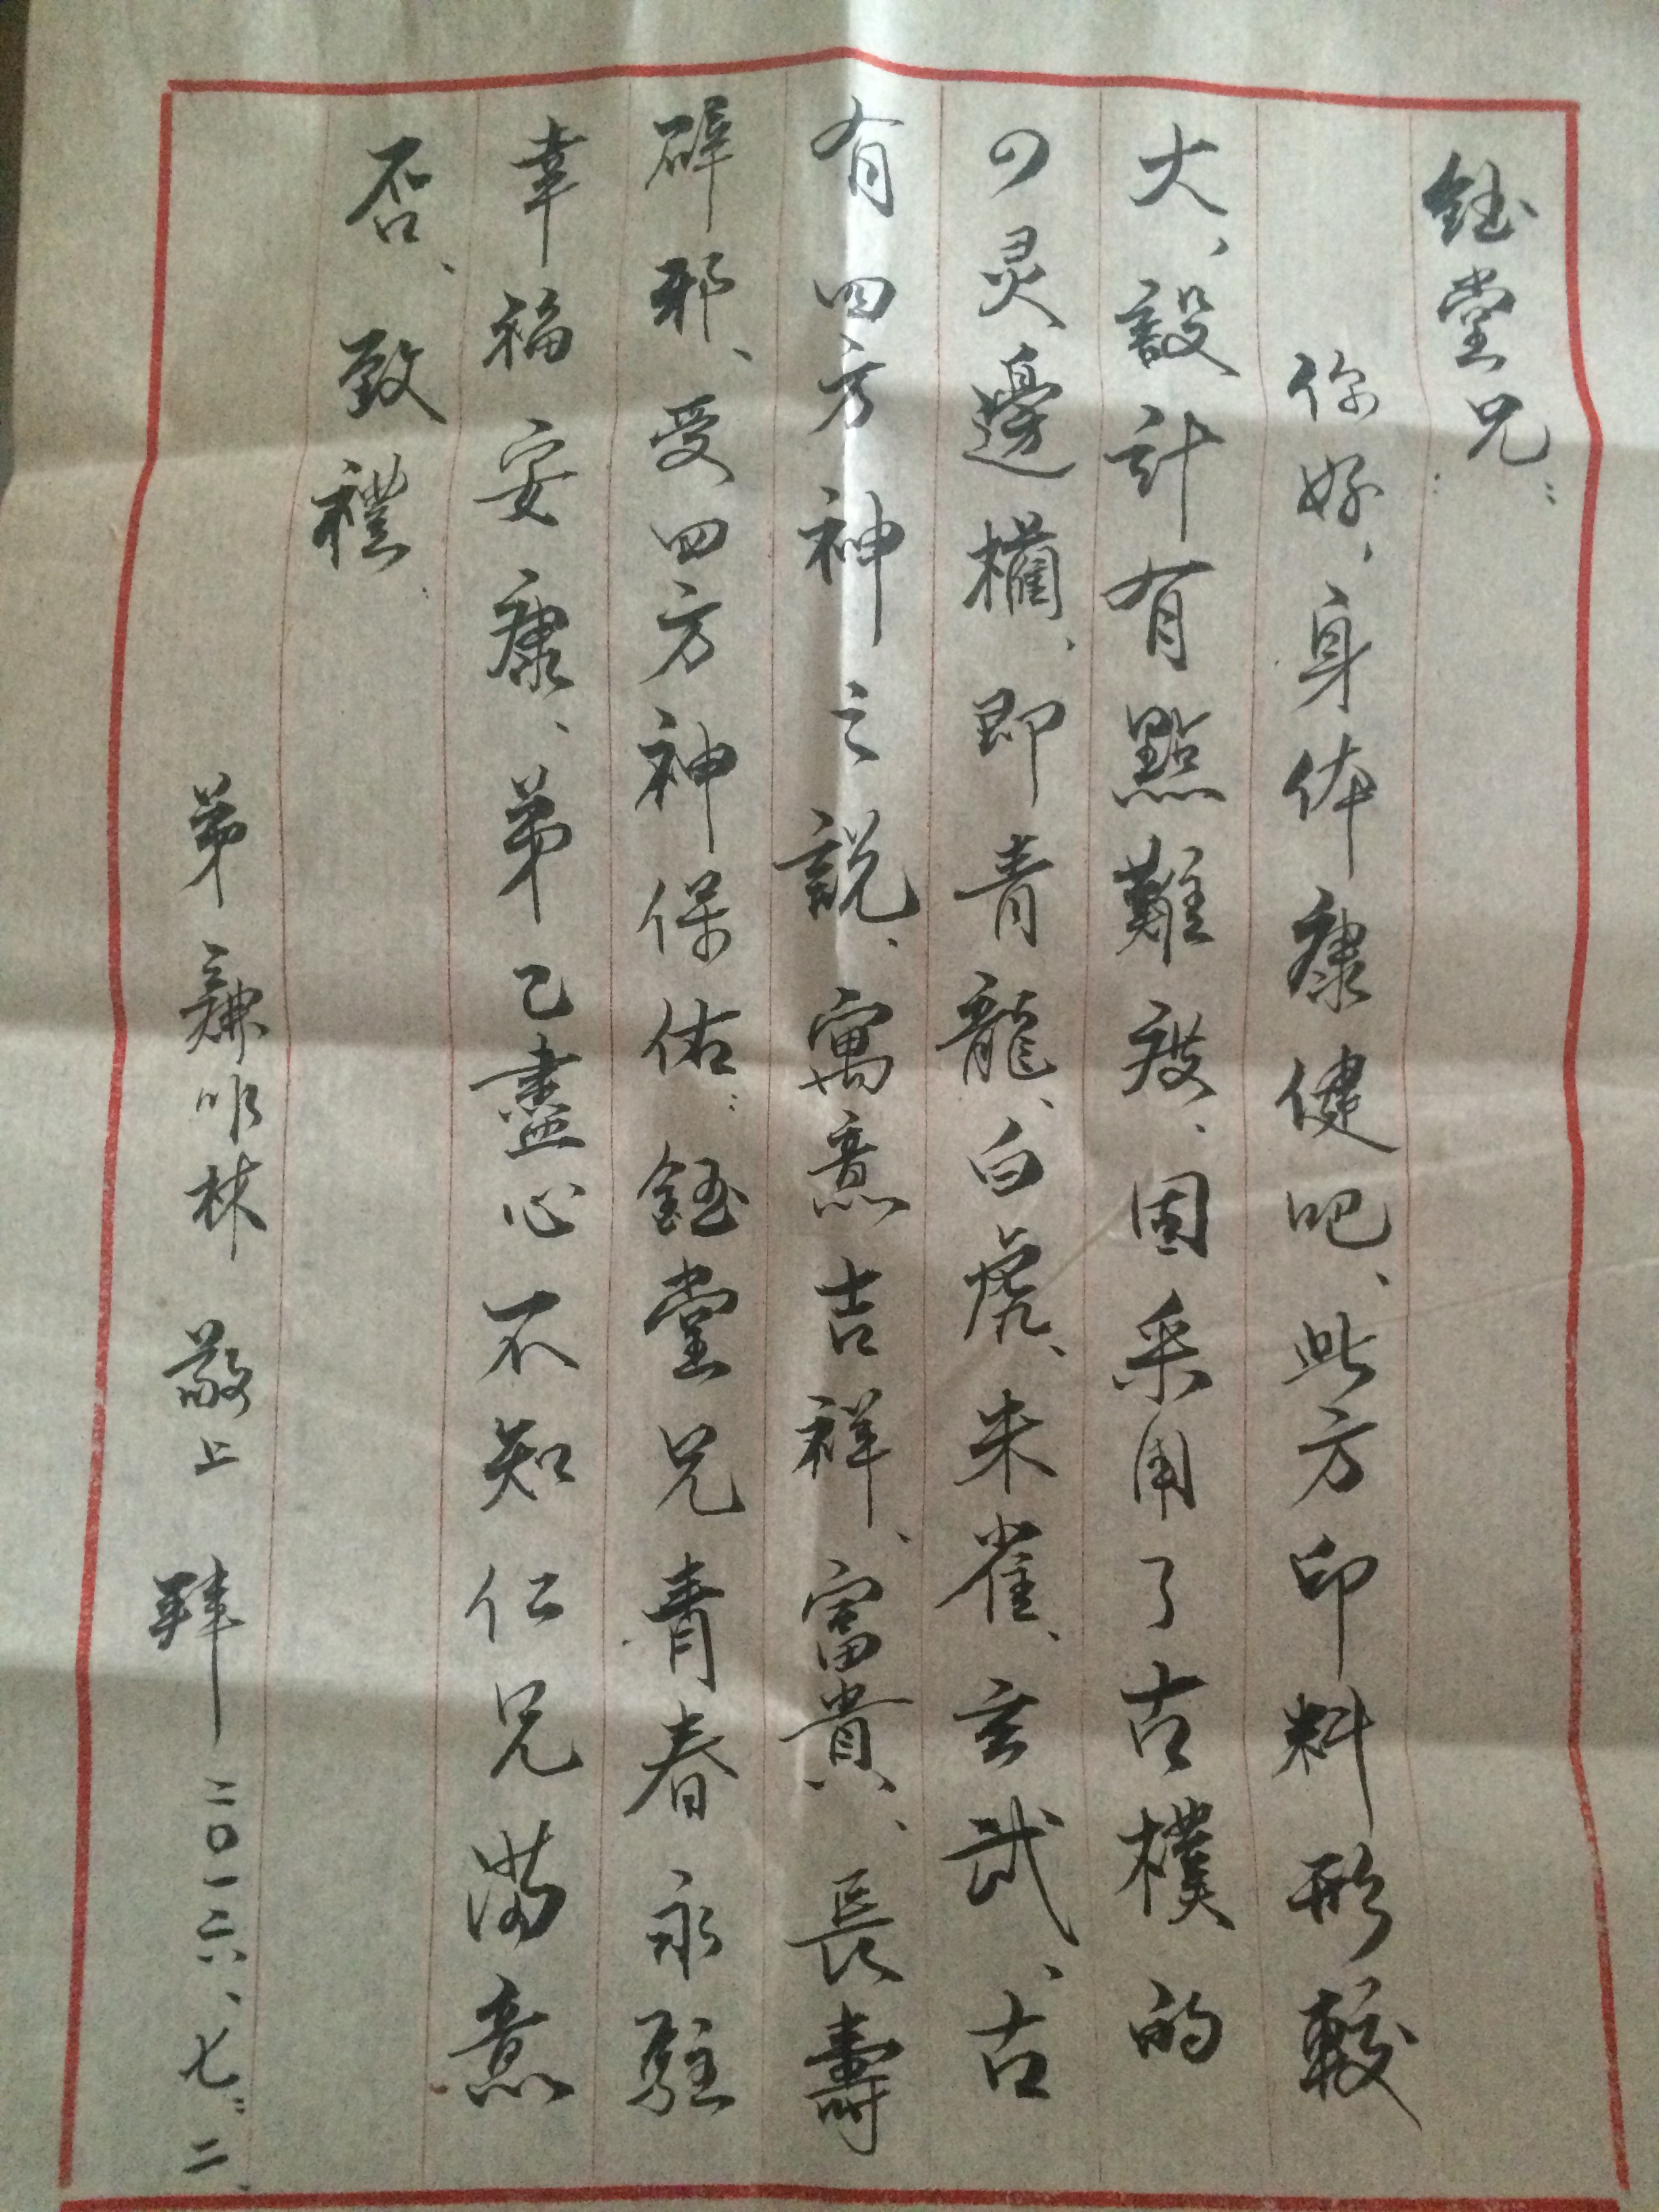 鈺堂兄：
你好，身体康健吧、此方印料形較
大、設計有點難度、固采用了古樸的
四灵邊欄、即青龍、白虎、朱雀、玄武、古
有四方神之説、寓意吉祥、富貴、長壽
辟邪、受四方神保佑：鈺堂兄青春永駐
幸福安康、弟已盡心不知仁兄满意
否、致禮
弟 林 敬上 拜 二〇一六、七：二